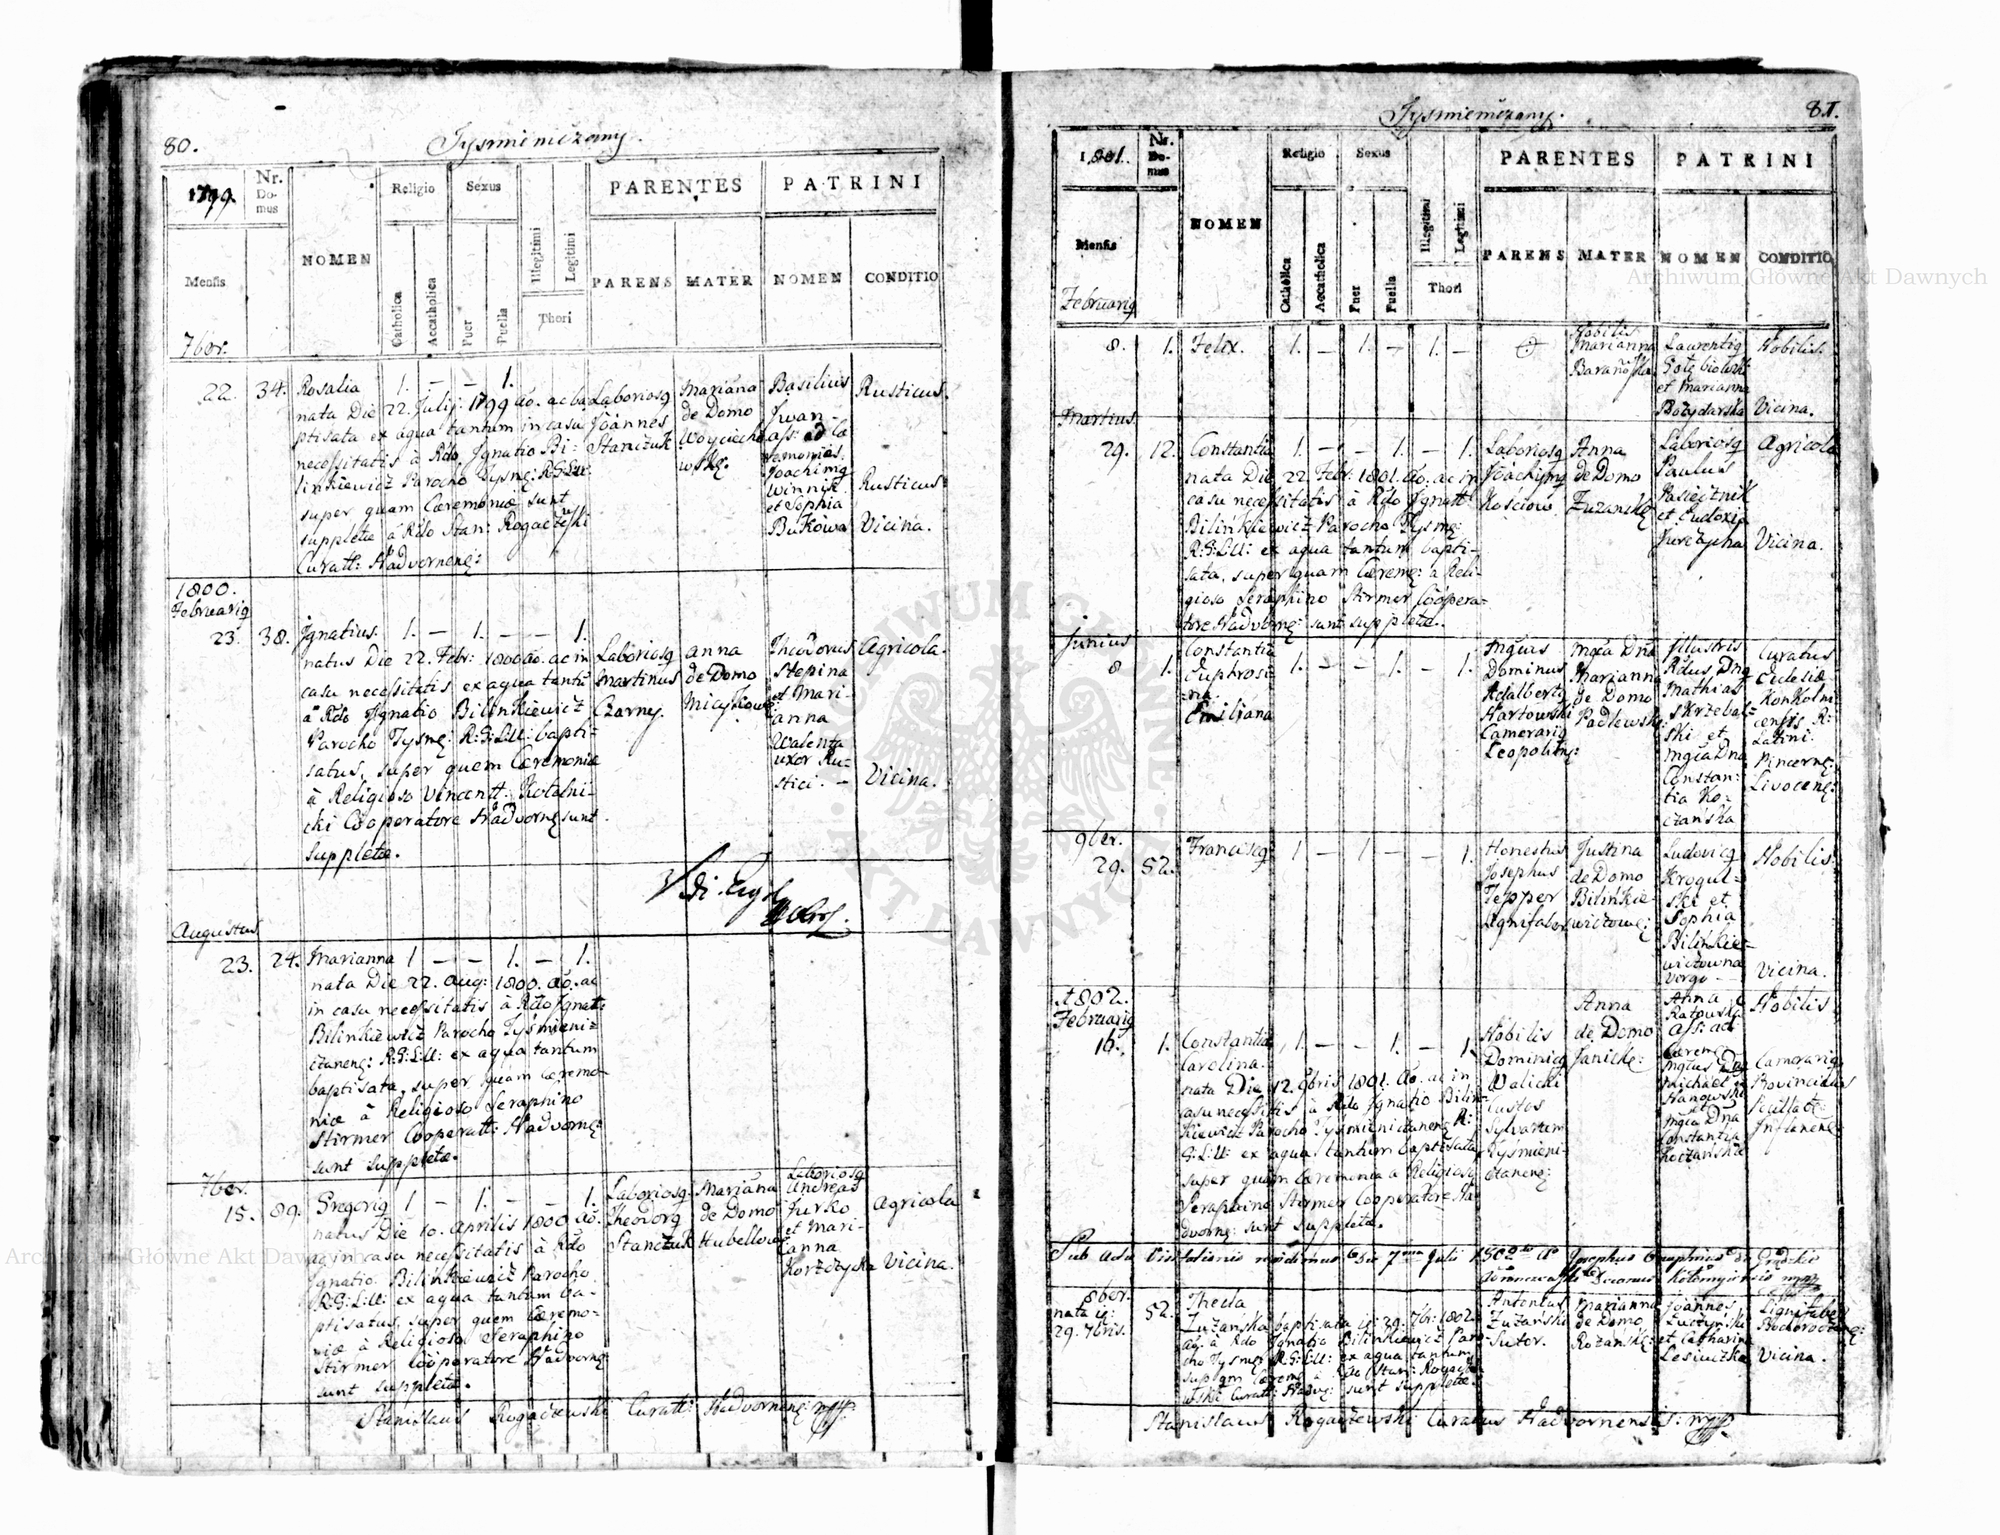 80.
Tysmieniczany.
1799.
Nr. Domus
NOMEN
Religio
Sexus
PARENTES
PATRINI
Mensis
Catholica
Accatholica
Puer
Puella
Illegitimi
Legitimi
Thori
PARENS
MATER
NOMEN
CONDITIO
7ber.
22. 34. Rosalia 1. — — 1.
nata Die 22. Julij 1799 ao. ac ba
ptisata ex aqua tantum in casu
necessitatis à Rdo Ignatio Bi:
linkiewicz Parocho Tysmę: R:G:L:U:
super quam Cæremoniæ sunt
suppletæ à Rdo Stan: Rogaczewski
Curatt: Nadvornenę:
Laboriosq
Joannes
Stanczuk
Mariana
de Domo
Woyciecho
wskę.
Basilius
Jwan
ass: ad Cæ
remonias.
Joachimq
Winnik
et Sophia
Bukowa
Rusticus.
Rusticus
Vicina.
1800.
Februariq
23. 38. Ignatius. 1. — 1. — — 1.
natus Die 22. Febr: 1800 ao. ac in
casu necessitatis ex aqua tantū
à Rdo Ignatio Bilinkiewicz
Parocho Tysmę: R:G:L:U: bapti-
satus, super quem Cæremoniæ
à Religioso Vincentt: Kotelni-
cki Cooperatore Nadvornę sunt
suppletæ.
Laboriosq
Martinus
Czarney.
Anna
de Domo
Theodorus
Stepina
et Mari-
anna
Walenta
uxor Ru-
stici. —
Agricola.
Vicina.
Augustus
23. 24. Marianna 1 — — 1. — 1.
nata Die 22. Aug: 1800. ao. ac
in casu necessitatis à Rdo Ignatt:
Bilinkiewicz Parocho Tyśmieni-
czanenę: R:G:L:U: ex aqua tantum
baptisata, super quam Cæremo-
niæ à Religioso Seraphino
Stirmer Cooperatt: Nadvornę:
sunt suppletæ.
7ber.
15. 89. Gregoriq 1 — 1. — — 1.
natus Die 10. Aprilis 1800 ao.
ac in casu necessitatis à Rdo
Ignatio Bilinkiewicz Parocho
R:G:L:U: ex aqua tantum ba-
ptisatus, super quem Cæremo-
niæ à Religioso Seraphino
Stirmer Cooperatore Nadvornę
sunt suppletæ.
Laboriosq.
Theodorq
Stanczuk
Mariana
de Domo
Hubellow
Laboriosq
Andreas
Jurko
et Mari-
anna
Korzczycka
Agricola
Vicina.
Stanislaus Rogaczewski Curatt: Nadvornenę: mpp.
81.
Tysmieniczany.
1801.
Nr. Domus
NOMEN
Religio
Sexus
PARENTES
PATRINI
Mensis
Catholica
Accatholica
Puer
Puella
Illegitimi
Legitimi
Thori
PARENS
MATER
NOMEN
CONDITIO
Februariq
8. 1. Felix. 1. — 1. — 1. —
Nobilis
Marianna
Barańska
Laurentiq
Gołębiowski
et Marianna
Bożydarska
Nobilis.
Vicina.
Martius.
29. 12. Constantia 1. — — 1. — 1.
nata Die 22. Febr: 1801. ao. ac in
casu necessitatis à Rdo Ignatt:
Bilinkiewicz Parocho Tysmę:
R:G:L:U: ex aqua tantum bapti-
sata, super quam Cæremę: à Reli-
gioso Seraphino Stirmer Coopera-
tore Nadvornę: sunt suppletæ.
Laboriosq
Joachimq
Kościow
Anna
de Domo
Zuzanskę
Laboriosq
Paulus
Pasiecznik
et Eudoxia
Jurczycha
Agricola
Vicina.
Junius
8 1. Constantia
Euphrosi-
na.
Emiliana
1. — — 1. — 1.
Mgfcus
Dominus
Adalbertq
Hartowski
Camerariq
Leopoliēn:
Mgfca Dna
Marianna
de Domo
Padlewskę
Illustris
Rdus Dnq
Mathias
Skrzebal-
ski et
Mgfca Dna
Constan-
tia Ko-
czańska
Curatus
Ecclesiæ
Konkolni-
censis R:
Latini.
Pincernę:
Livocenę:
9ber.
29. 52. Franciscq 1. — 1. — — 1.
Honestus
Josephus
Tepper
Lignifaber
Justina
de Domo
Bilinkie-
wiczowę:
Ludovicq
Krogul-
ski et
Sophia
Bilinkie-
wiczowna
Virgo —
Nobilis
Vicina.
1802.
Februariq
16. 1. Constantia
Carolina.
1. — — 1. — 1.
nata Die 12. 9bris 1801. ao. ac in
casu necessitatis à Rdo Ignatio Bilin-
kiewicz Parocho Tysmieniczanenę R:
G:L:U: ex aqua tantum baptisata
super quam Cæremonia a Religioso
Seraphino Stirmer Cooperatore Na-
dvornę: sunt suppletæ.
Nobilis
Dominicq
Walicki
Custos
Sylvarum
Tyśmieni-
czanenę:
Anna
de Domo
Janickę:
Anna
Ratowska
ass: ad
Cærem:
Mgfcus Dnq
Michael
Hanowski
et
Mgfca Dna
Constantia
Koczańska
Nobilis
Camerariq
Provincialis
Vicina
Sub actu Visitationis vidimus die 7ma Julii 1802do ao
8ber.
nata q:
29. 7bris.
52. Thecla
Zuzańska baptisata q: 29. 7br: 1802.
ao: à Rdo Ignatio Bilinkiewicz Paro-
cho Tysmę: R:G:L:U: ex aqua tantum
sup qm Cæremę à Rdo Stan: Rogacze-
wski Curatt: Nadvę: sunt suppletæ.
Antonius
Zuzański
Sutor.
Marianna
de Domo
Rozańskę:
Joannes
Zuczynski
et Catharina
Lesiuczka
Lignifaber
Bohorodczanę:
Vicina.
Stanislaus Rogaczewski Curatus Nadvornensis: mpp.
Archiwum Główne Akt Dawnych
Archiwum Główne Akt Dawnych
ARCHIWUM GŁÓWNE · AKT DAWNYCH ·